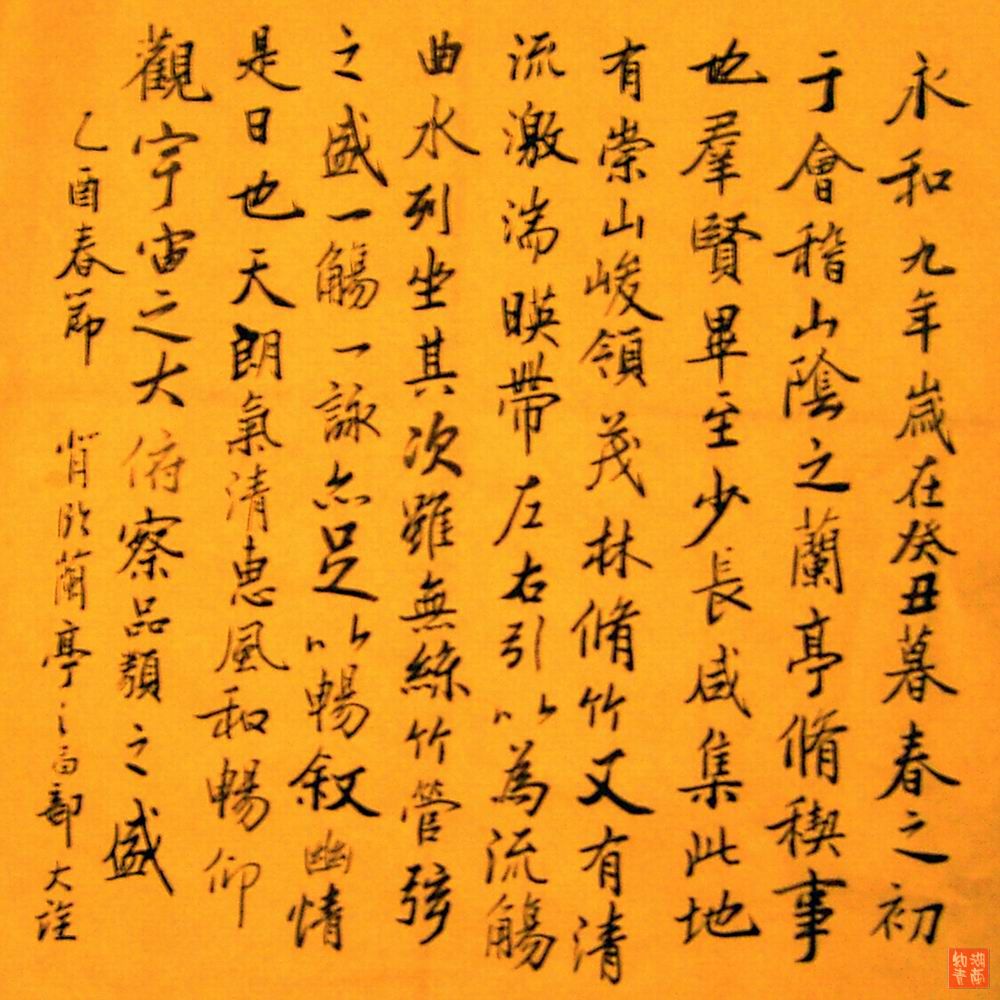 永和九年歲在癸丑暮春之初
于會稽山陰之蘭亭脩稧事
也羣賢畢至少長咸集此地
有崇山峻領茂林脩竹又有清
流激湍暎帶左右引以為流觴
曲水列坐其次雖無絲竹管弦
之盛一觴一詠亦足以暢敘幽情
是日也天朗氣清惠風和暢仰
觀宇宙之大俯察品類之盛
乙酉春節 背臨蘭亭之局部